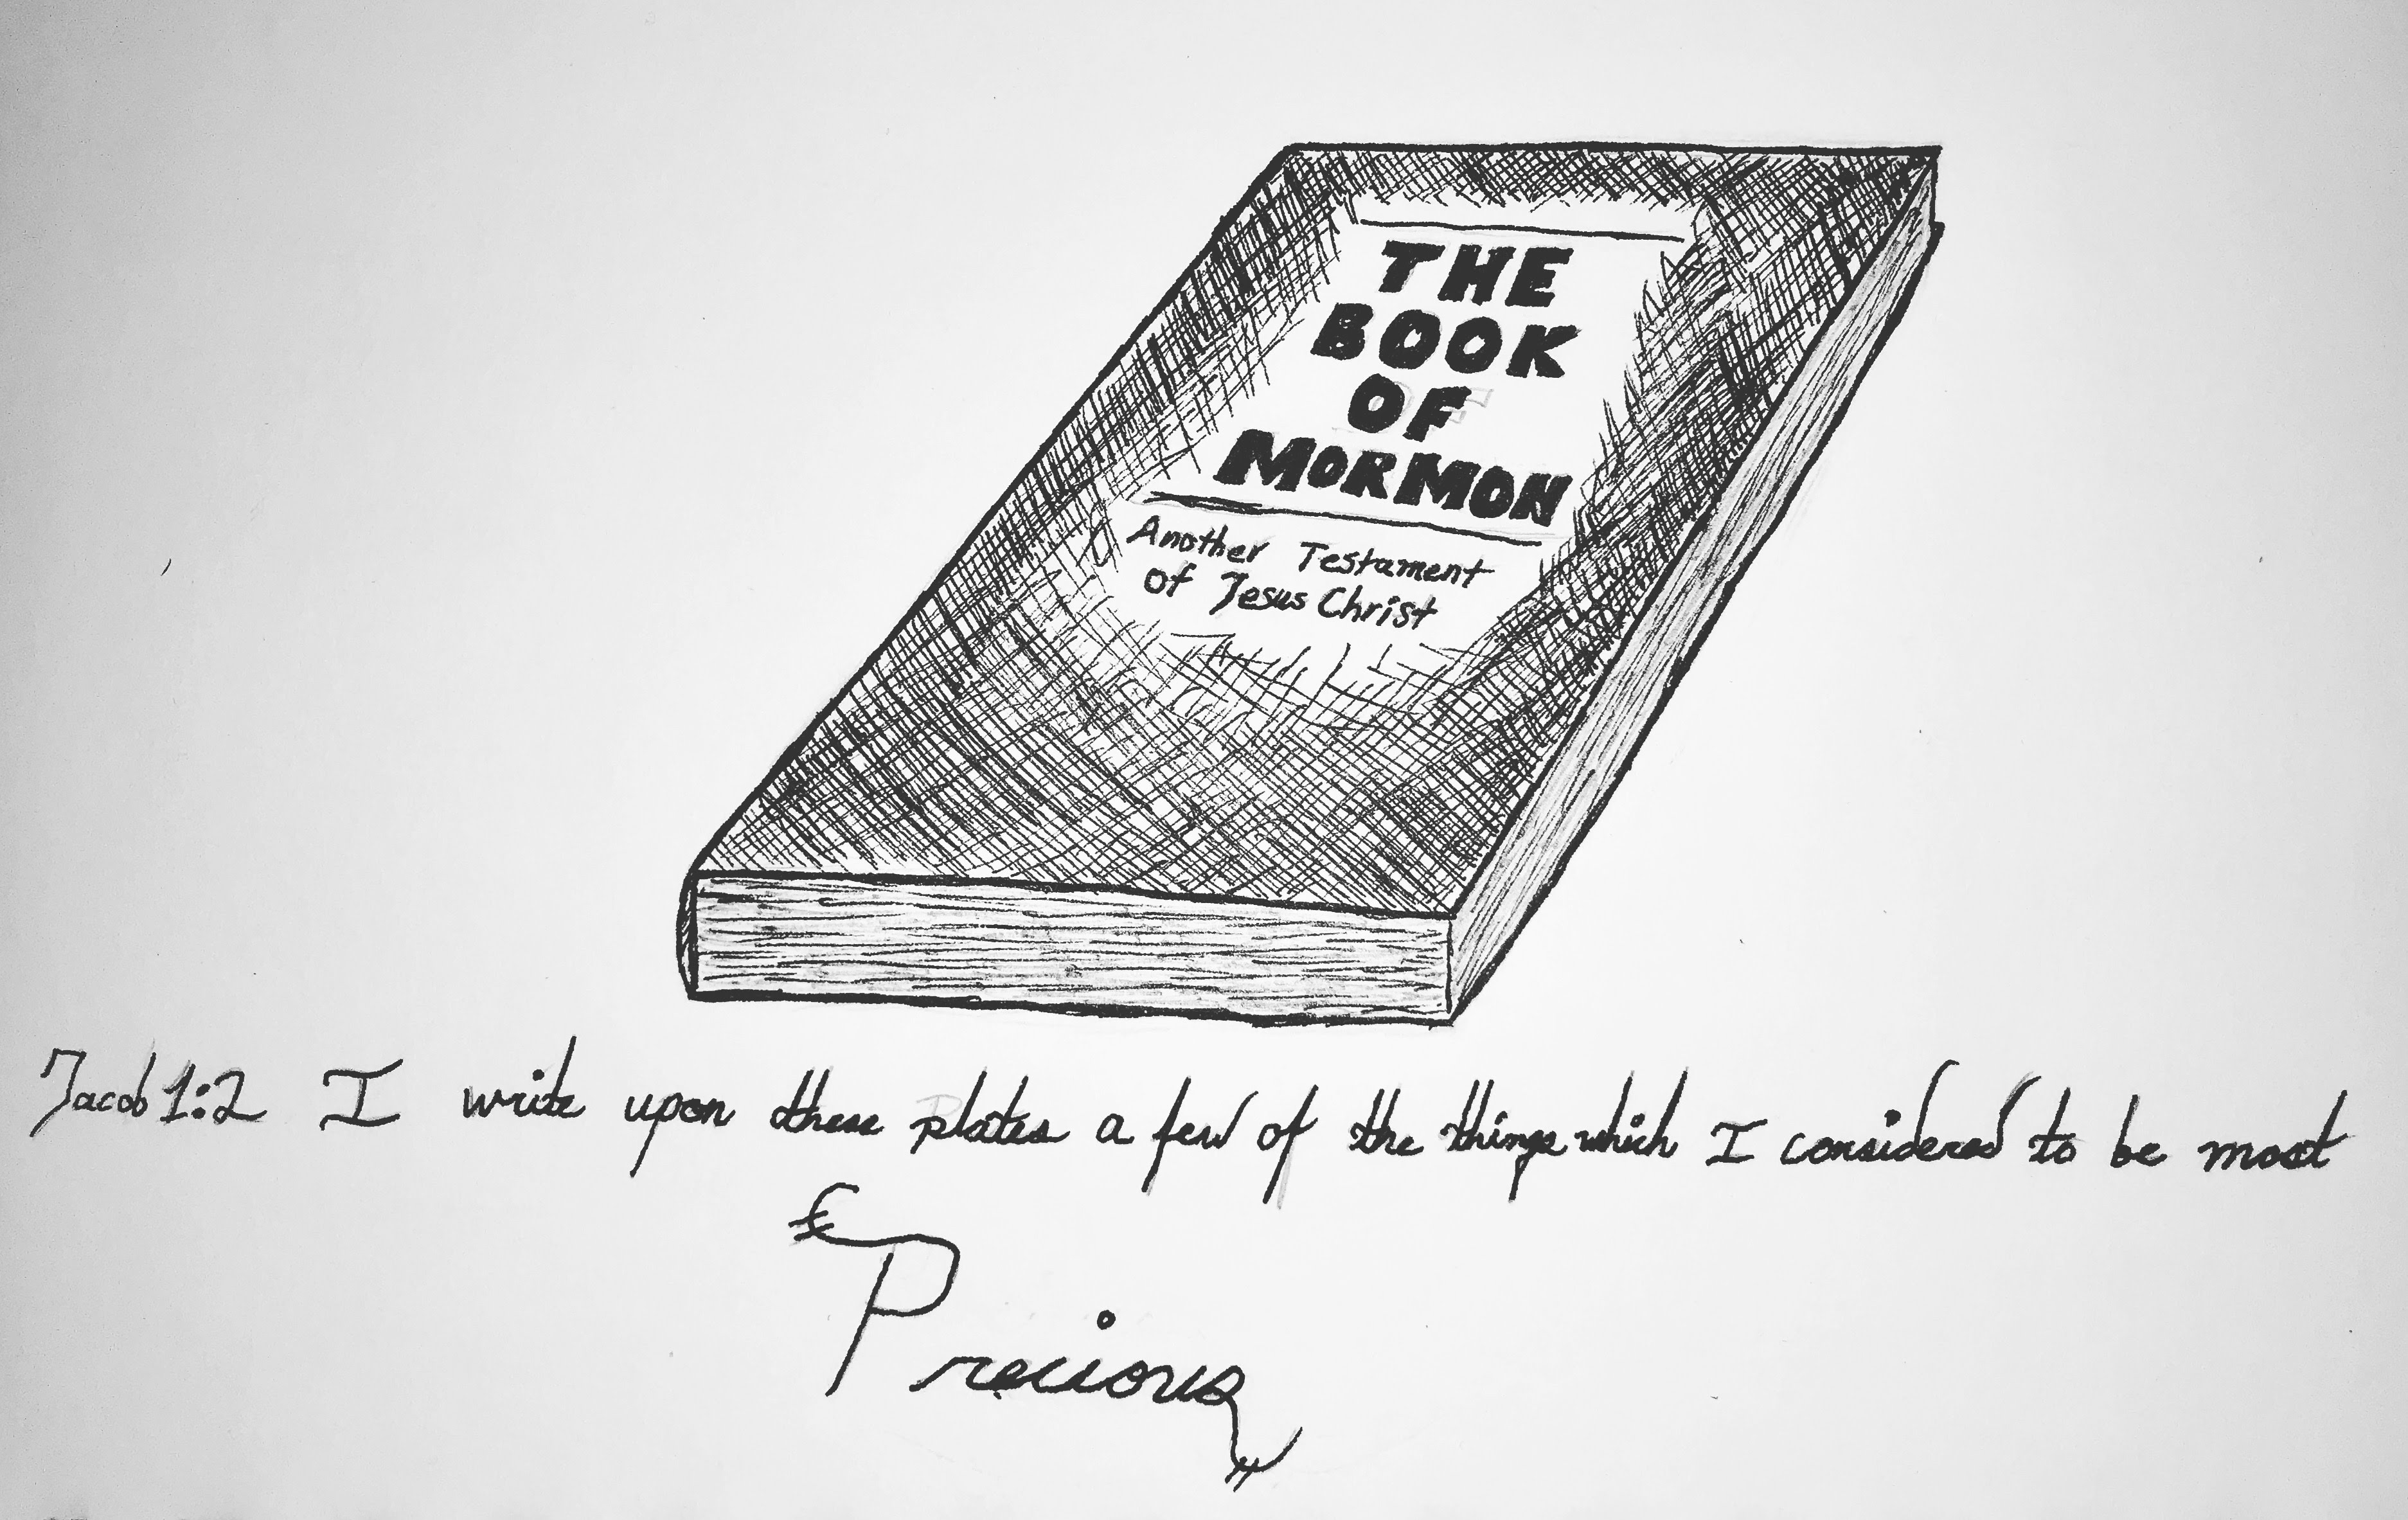 THE
BOOK
OF
MORMON
Another Testament
of Jesus Christ
Jacob 1:2 I write upon these plates a few of the things which I considered to be most
Precious